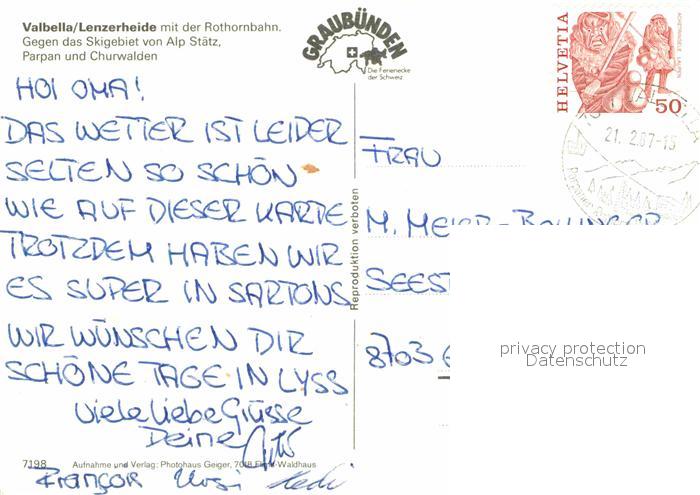 Valbella/Lenzerheide mit der Rothornbahn.
Gegen das Skigebiet von Alp Stätz,
Parpan und Churwalden
GRAUBÜNDEN
Die Ferienecke
der Schweiz
HELVETIA
50
21. 2.87-15
HOI OMA!
DAS WETTER IST LEIDER
SELTEN SO SCHÖN
WIE AUF DIESER KARTE
TROTZDEM HABEN WIR
ES SUPER IN SARTONS
WIR WÜNSCHEN DIR
SCHÖNE TAGE IN LYSS
Viele liebe Grüsse
Deine
François Ursi Hedi
Reproduktion verboten
FRAU
M. MEIER-BOLLINGER
SEEST
8703
privacy protection
Datenschutz
7198 Aufnahme und Verlag: Photohaus Geiger, 7018 Flims-Waldhaus